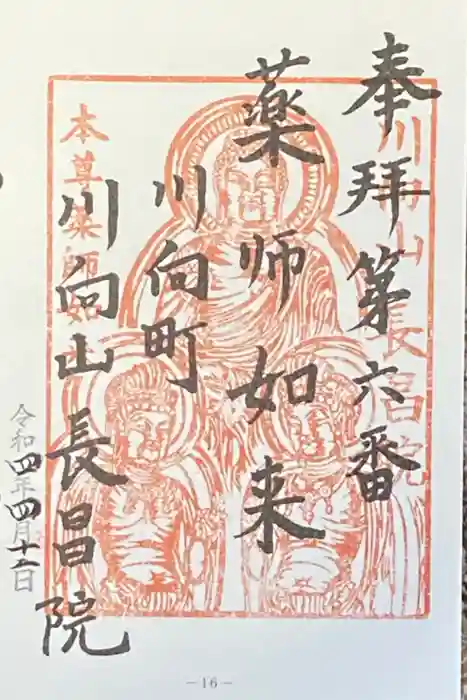 奉拝第六番
川向山長昌院
薬師如来
川向町
川向山長昌院
本尊薬師如来
令和四年四月十二日
-16-